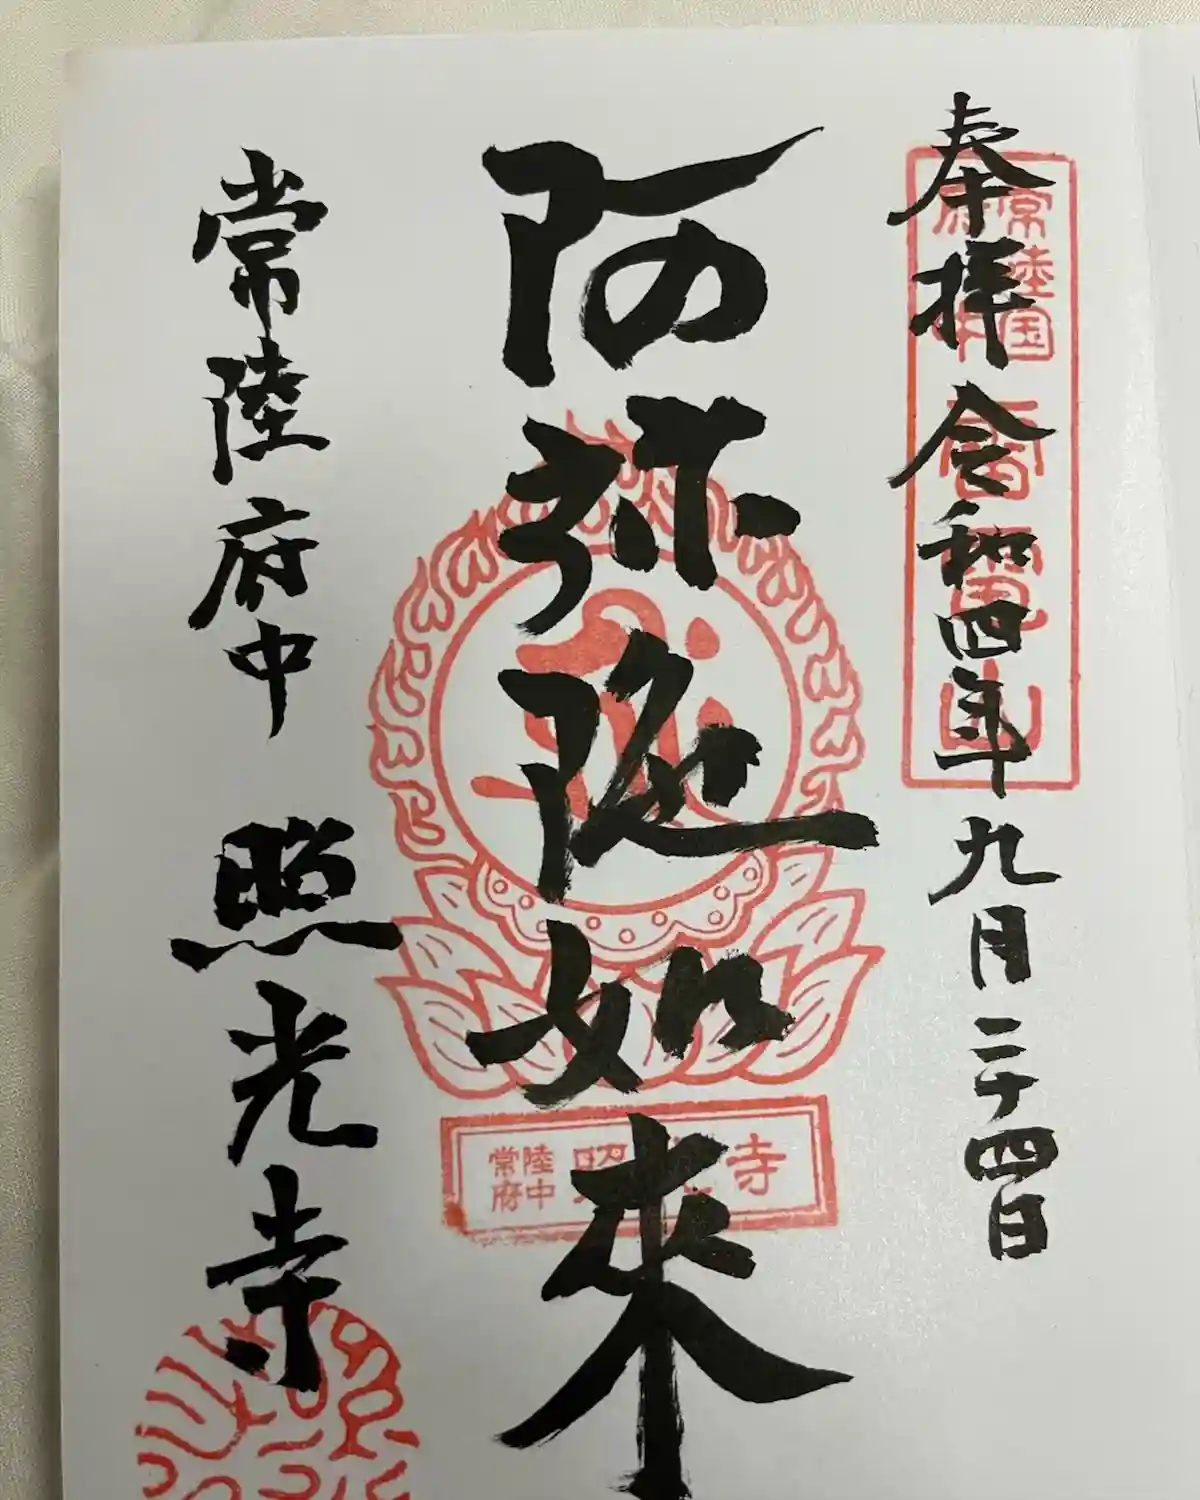 奉拝 令和四年九月二十四日
常陸国
府中
阿弥陀如来
常陸
府中
照光寺
常陸府中 照光寺